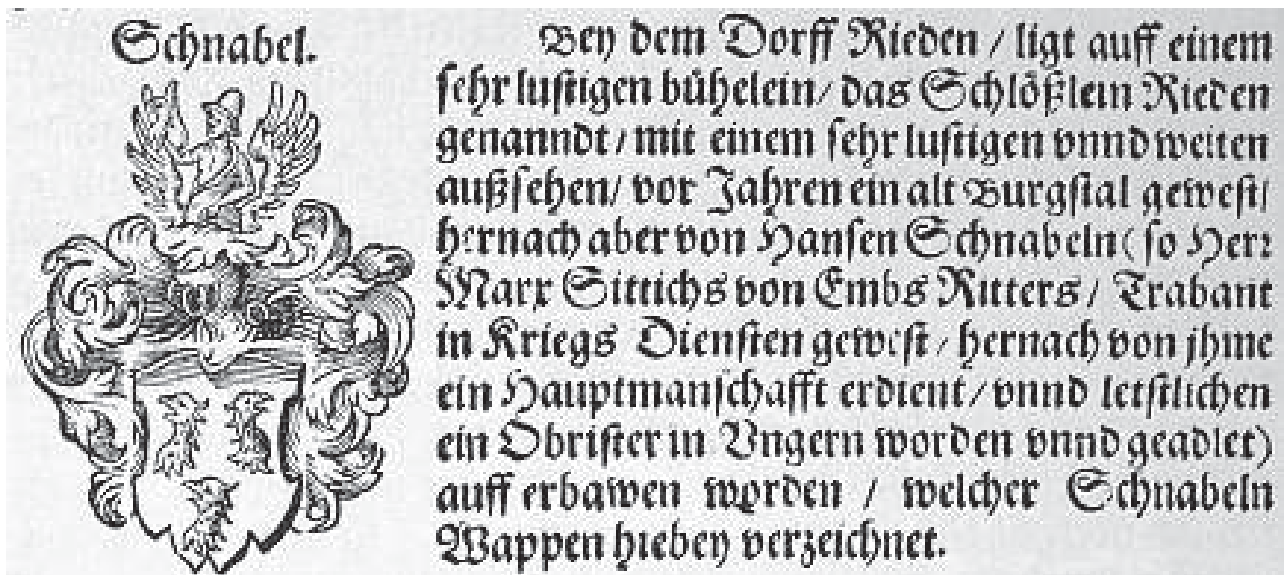 Schnabel.
Bey dem Dorff Rieden / ligt auff einem
sehr lustigen bühelein / das Schlößlein Rieden
genanndt / mit einem sehr lustigen vnnd weiten
außsehen / vor Jahren ein alt Burgstal gewest /
hernach aber von Hansen Schnabeln ( so Herr
Marx Sittichs von Embs Ritters / Trabant
in Kriegs Diensten gewest / hernach von jhme
ein Hauptmanschafft erdient / vnnd letstlichen
ein Obrister in Vngern worden vnnd geadlet )
auff erbawen worden / welcher Schnabeln
Wappen hiebey verzeichnet.